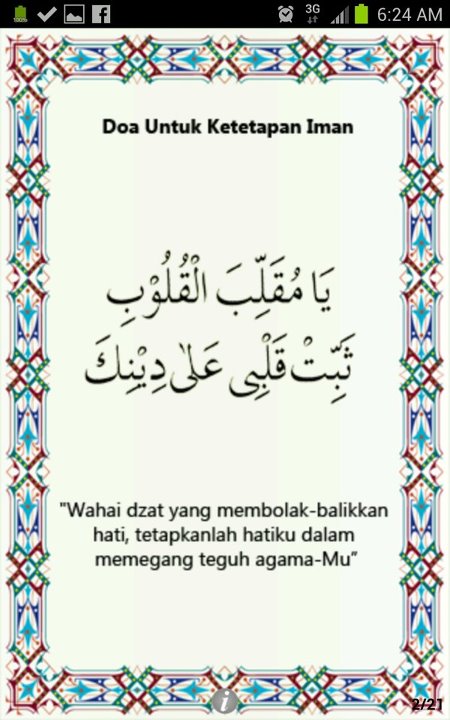 3G
6:24 AM
Doa Untuk Ketetapan Iman
يَا مُقَلِّبَ الْقُلُوْبِ
ثَبِّتْ قَلْبِى عَلٰى دِيْنِكَ
"Wahai dzat yang membolak-balikkan
hati, tetapkanlah hatiku dalam
memegang teguh agama-Mu”
2/21